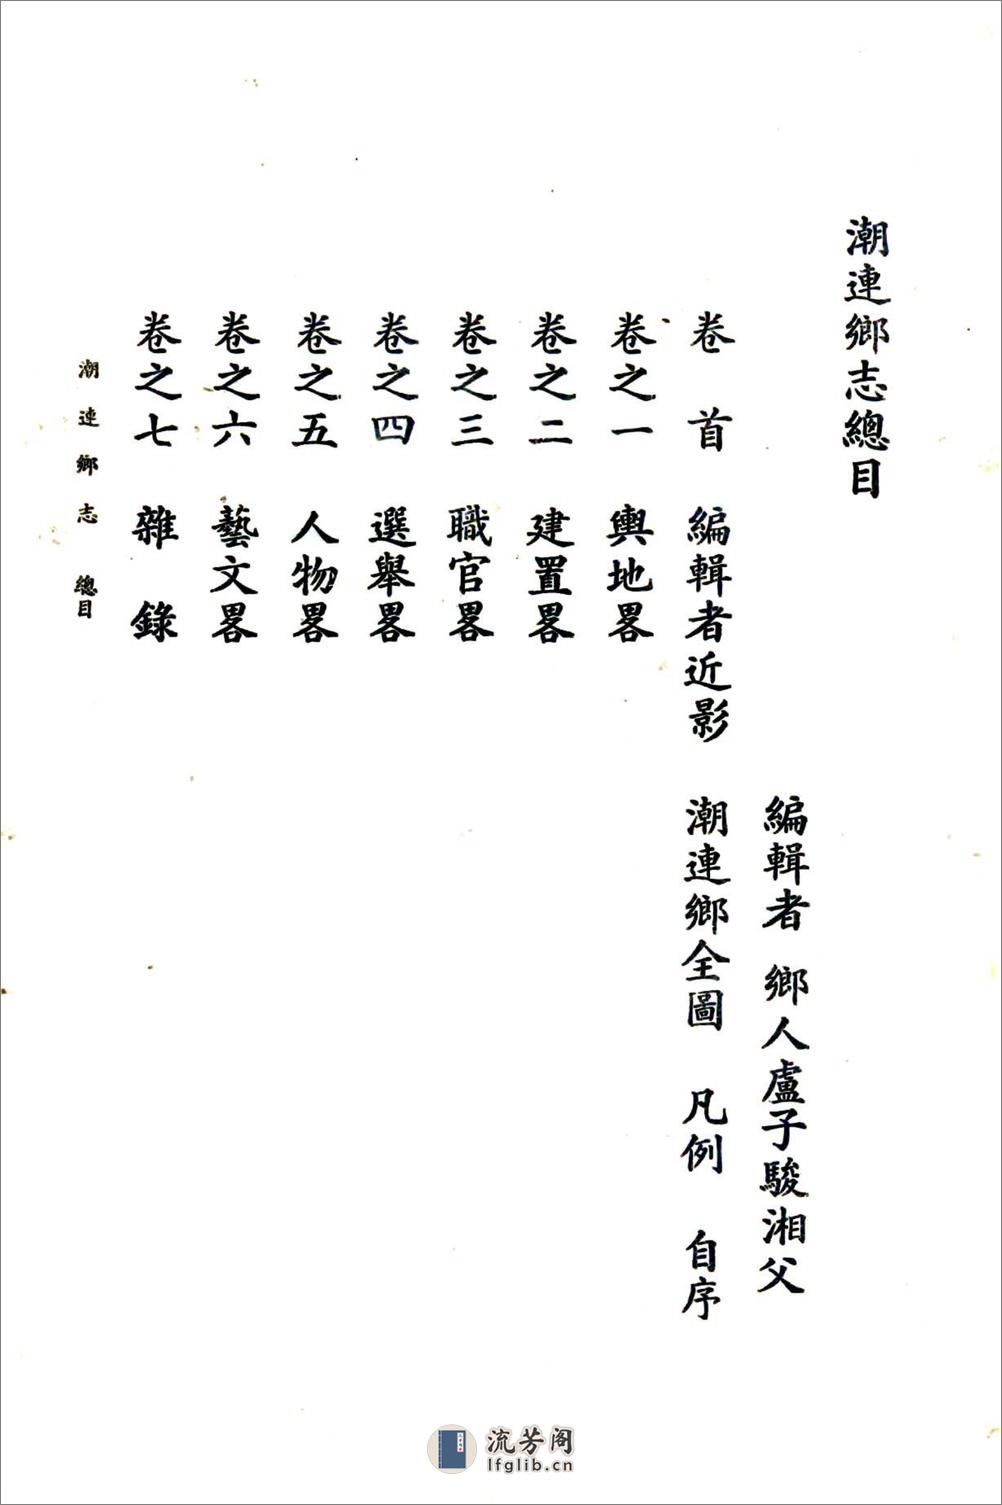 潮連鄉志總目
編輯者 鄉人盧子駿湘父
卷首 編輯者近影 潮連鄉全圖 凡例 自序
卷之一 輿地畧
卷之二 建置畧
卷之三 職官畧
卷之四 選舉畧
卷之五 人物畧
卷之六 藝文畧
卷之七 雜錄
潮連鄉志 總目
流芳阁
lfglib.cn